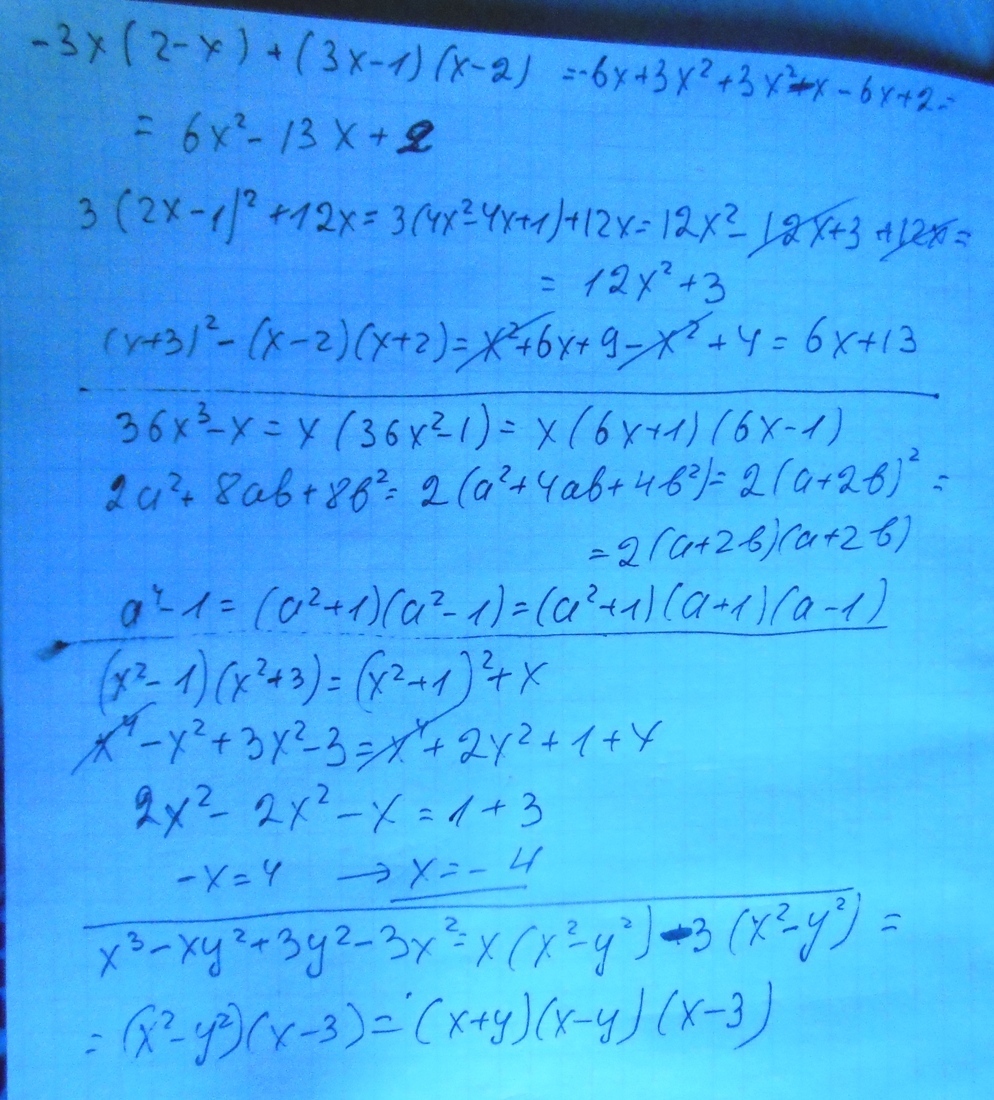 -3x(2-x)+(3x-1)(x-2) =-6x+3x²+3x²-x-6x+2=
= 6x²-13x+2
3(2x-1)²+12x=3(4x²-4x+1)+12x=12x²-12x+3+12x=
= 12x²+3
(x+3)²-(x-2)(x+2)=x²+6x+9-x²+4=6x+13
36x³-x=x(36x²-1)=x(6x+1)(6x-1)
2a²+8ab+8b²=2(a²+4ab+4b²)=2(a+2b)²=
=2(a+2b)(a+2b)
a⁴-1=(a²+1)(a²-1)=(a²+1)(a+1)(a-1)
(x²-1)(x²+3)=(x²+1)²+x
x⁴-x²+3x²-3=x⁴+2x²+1+x
2x²-2x²-x=1+3
-x=4 → x=-4
x³-xy²+3y²-3x²=x(x²-y²)-3(x²-y²)=
=(x²-y²)(x-3)=(x+y)(x-y)(x-3)